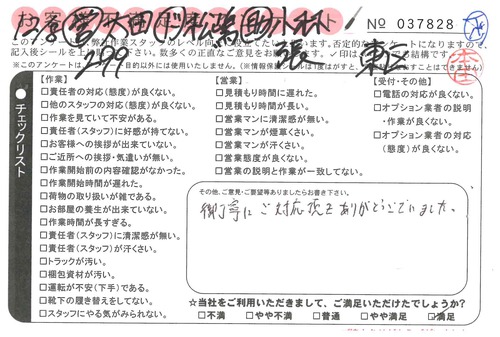 No 037828
このアンケートは
【作業】
□責任者の対応(態度)が良くない。
□他のスタッフの対応(態度)が良くない。
□作業を見ていて不安がある。
□責任者(スタッフ)に好感が持てない。
□お客様への挨拶が出来ていない。
□ご近所への挨拶・気遣いが無い。
□作業開始前の内容確認がなかった。
□作業開始時間が遅れた。
□荷物の取り扱いが雑である。
□お部屋の養生が出来ていない。
□作業時間が長すぎる。
□責任者(スタッフ)に清潔感が無い。
□責任者(スタッフ)が汗くさい。
□トラックが汚い。
□梱包資材が汚い。
□運転が不安(下手)である。
□靴下の履き替えをしてない。
□スタッフにやる気がみられない。
【営業】
□見積もり時間に遅れた。
□見積もり時間が長い。
□営業マンに清潔感が無い。
□営業マンが煙草くさい。
□営業マンが汗くさい。
□営業マンが良くない。
□営業態度が良くない。
□営業の説明と作業が一致してない。
【受付・その他】
□電話の対応が良くない。
□オプション業者の説明
・作業が良くない。
□オプション業者の対応
(態度)が良くない。
●チェックリスト
その他、ご意見・ご要望等ありましたらお書き下さい。
御丁寧にご対応頂きありがとうございました。
☆当社をご利用いただきまして、ご満足いただけたでしょうか?
□不満 □やや不満 □普通 □やや満足 ☑満足